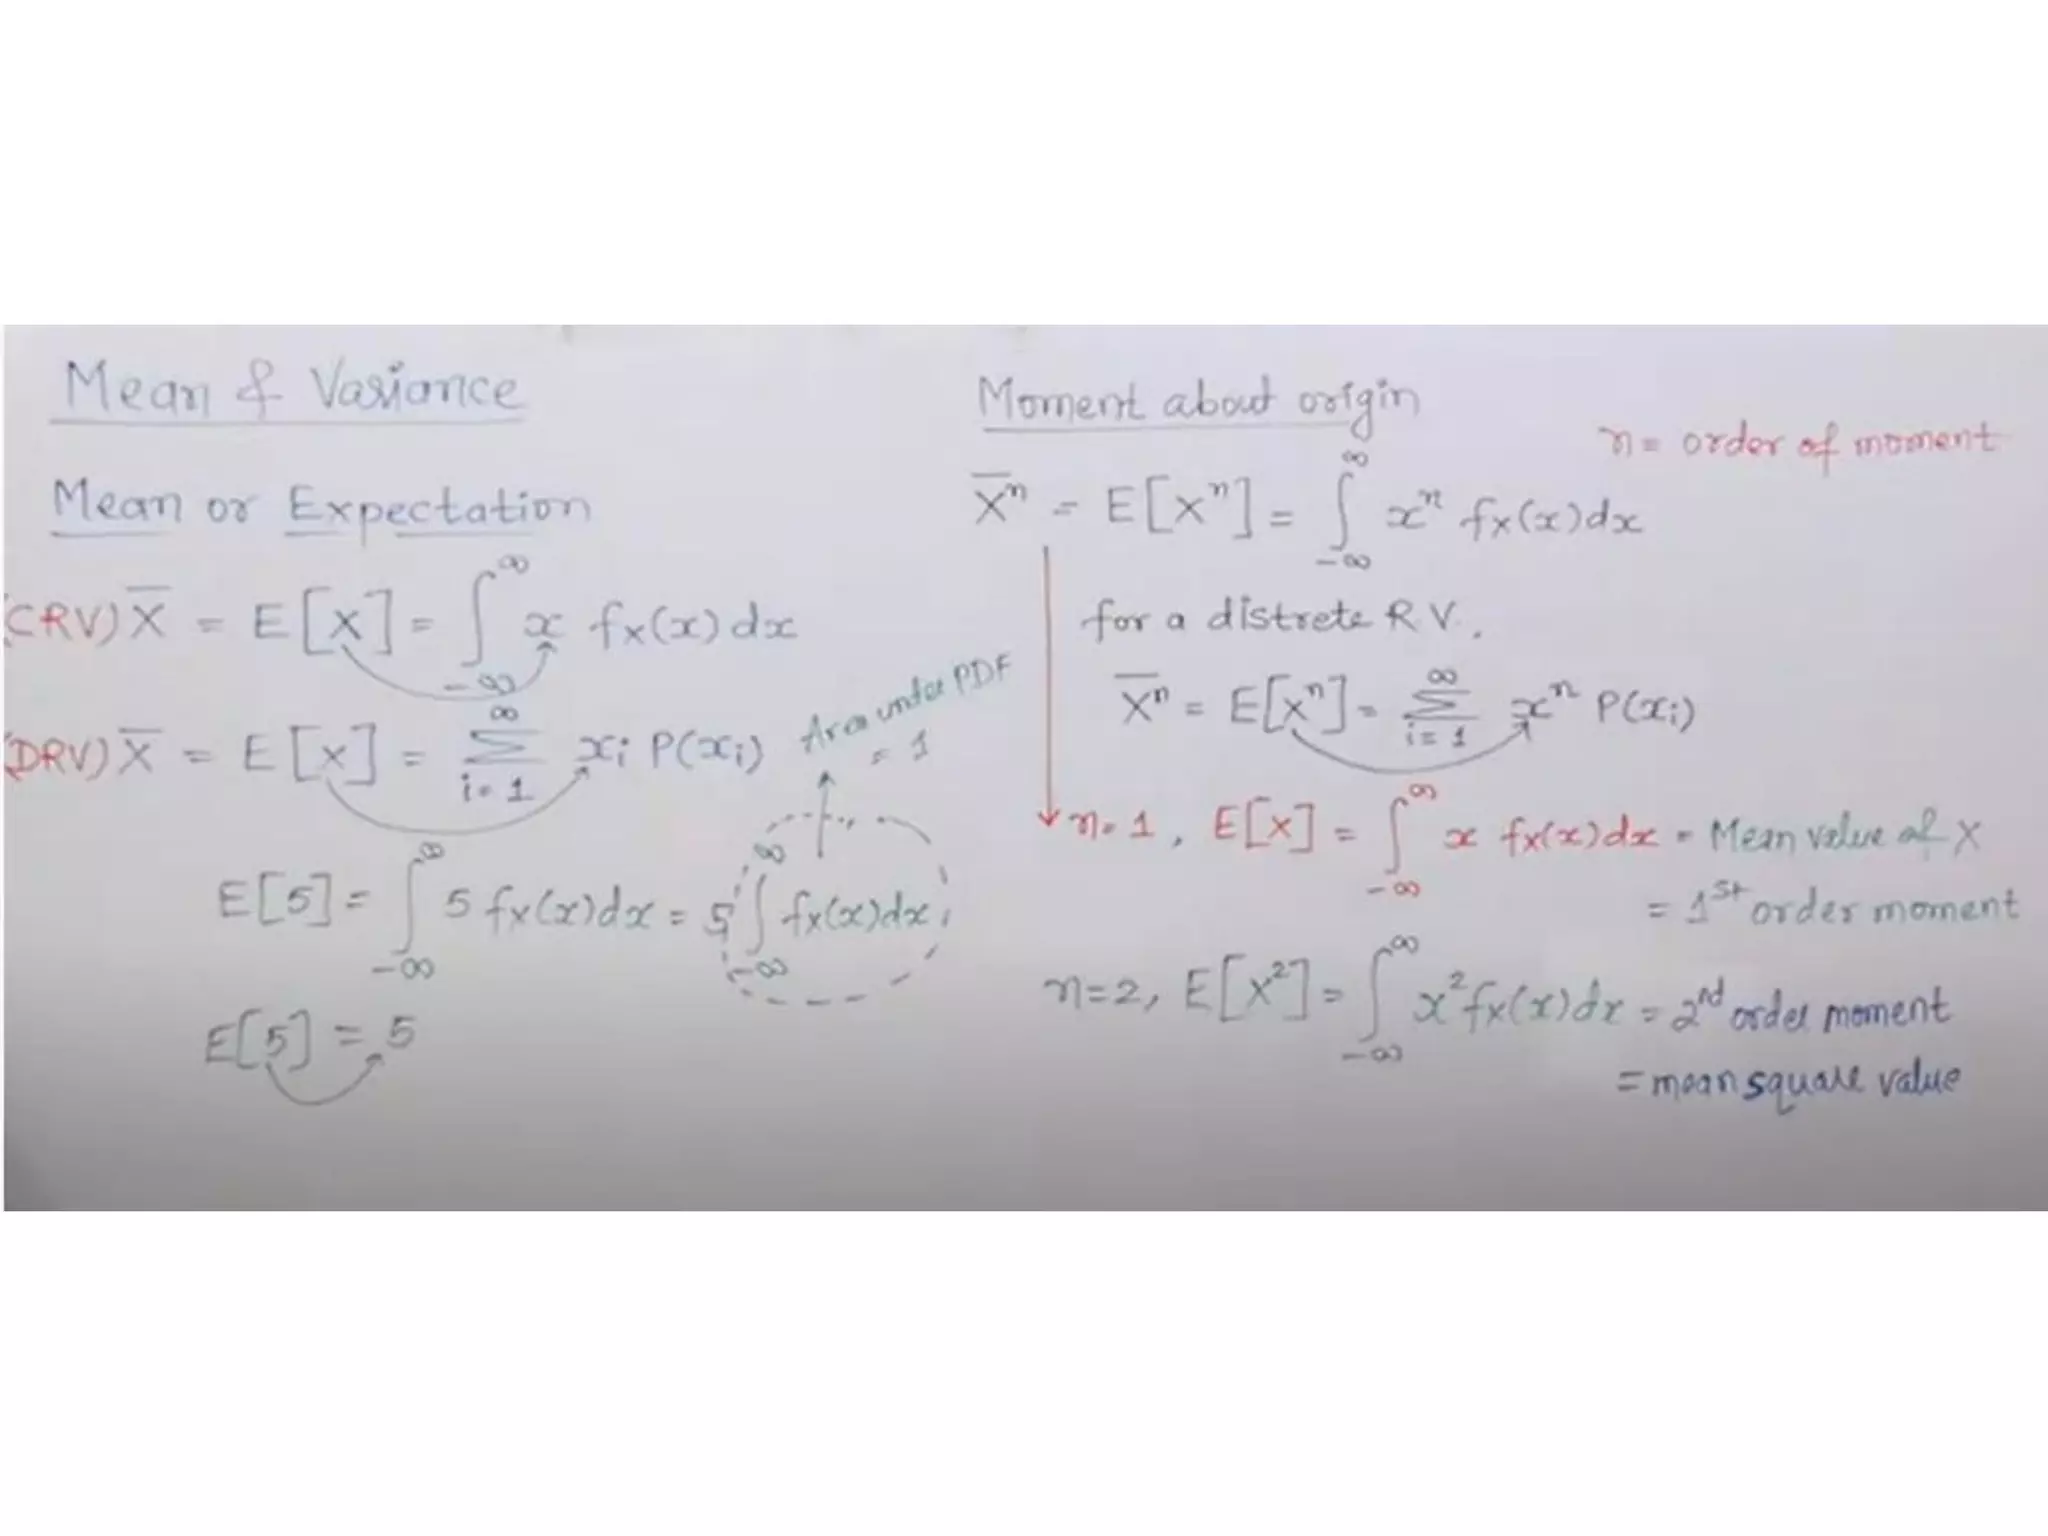 Mean & Variance
Mean or Expectation
(CRV) X̅ = E[X] = ∫_{-∞}^{∞} x fx(x) dx
(DRV) X̅ = E[X] = ∑_{i=1}^{∞} xi P(xi)
Area unter PDF
= 1
E[5] = ∫_{-∞}^{∞} 5 fx(x)dx = 5 ∫_{-∞}^{∞} fx(x)dx
E[5] = 5
Moment about origin
n = order of moment
X̅ⁿ = E[Xⁿ] = ∫_{-∞}^{∞} xⁿ fx(x)dx
for a distrete R V.
X̅ⁿ = E[xⁿ] = ∑_{i=1}^{∞} xⁿ P(xi)
n=1, E[X] = ∫_{-∞}^{∞} x fx(x)dx = Mean value of X
= 1st order moment
n=2, E[X²] = ∫_{-∞}^{∞} x² fx(x)dx = 2nd order moment
= mean square value